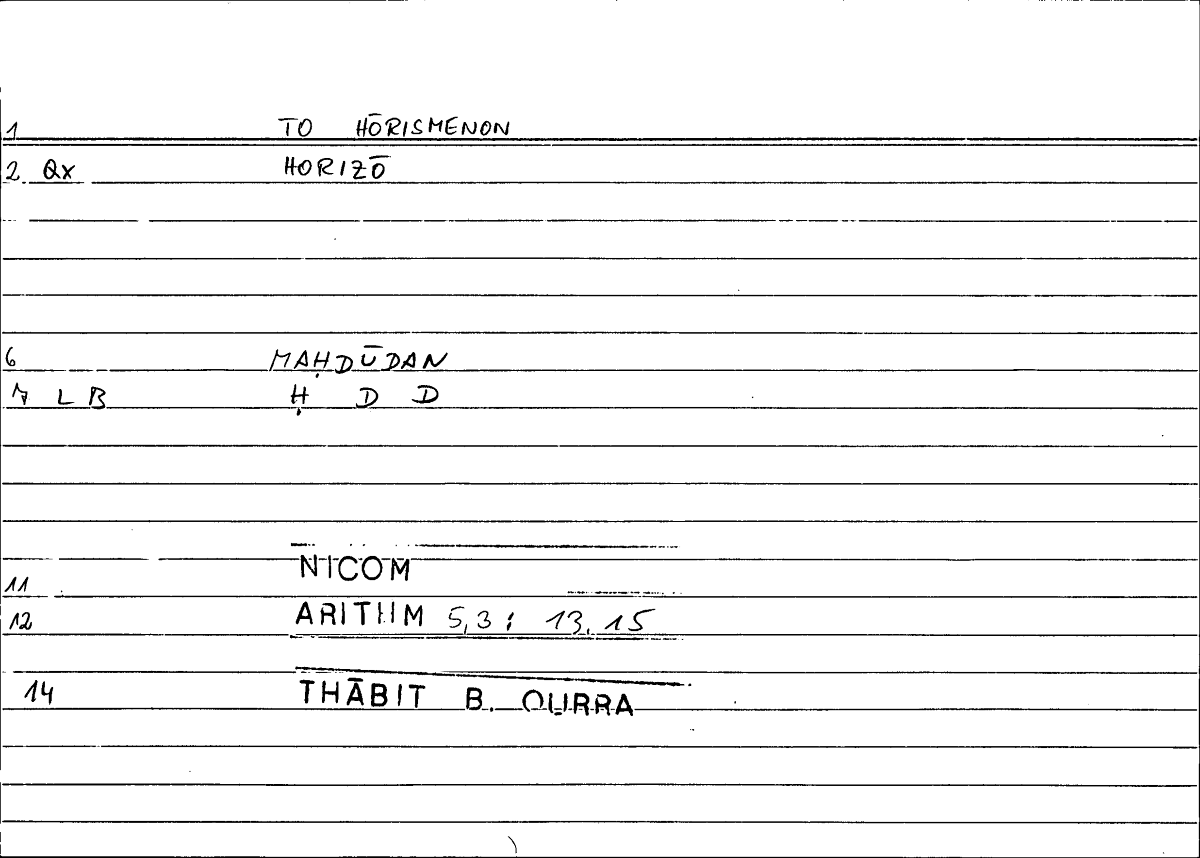 1 TO HŌRISMENON
2 Qx HORIZŌ
6 MAḤDŪDAN
7 L B Ḥ D D
11 NICOM
12 ARITHM 5,3 ; 13,15
14 THĀBIT B. QURRA